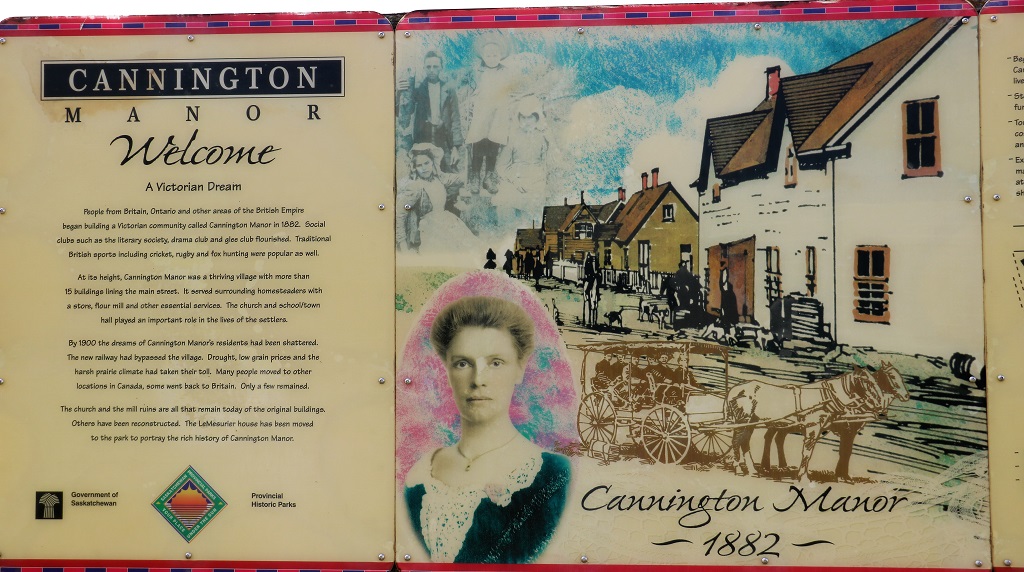 CANNINGTON
MANOR
Welcome
A Victorian Dream
People from Britain, Ontario and other areas of the British Empire
began building a Victorian community called Cannington Manor in 1882. Social
clubs such as the literary society, drama club and glee club flourished. Traditional
British sports including cricket, rugby and fox hunting were popular as well.
At its height, Cannington Manor was a thriving village with more than
15 buildings lining the main street. It served surrounding homesteaders with
a store, flour mill and other essential services. The church and school/town
hall played an important role in the lives of the settlers.
By 1900 the dreams of Cannington Manor's residents had been shattered.
The new railway had bypassed the village. Drought, low grain prices and the
harsh prairie climate had taken their toll. Many people moved to other
locations in Canada, some went back to Britain. Only a few remained.
The church and the mill ruins are all that remain today of the original buildings.
Others have been reconstructed. The LeMesurier house has been moved
to the park to portray the rich history of Cannington Manor.
Government of
Saskatchewan
Provincial
Historic Parks
Cannington Manor
~ 1882 ~